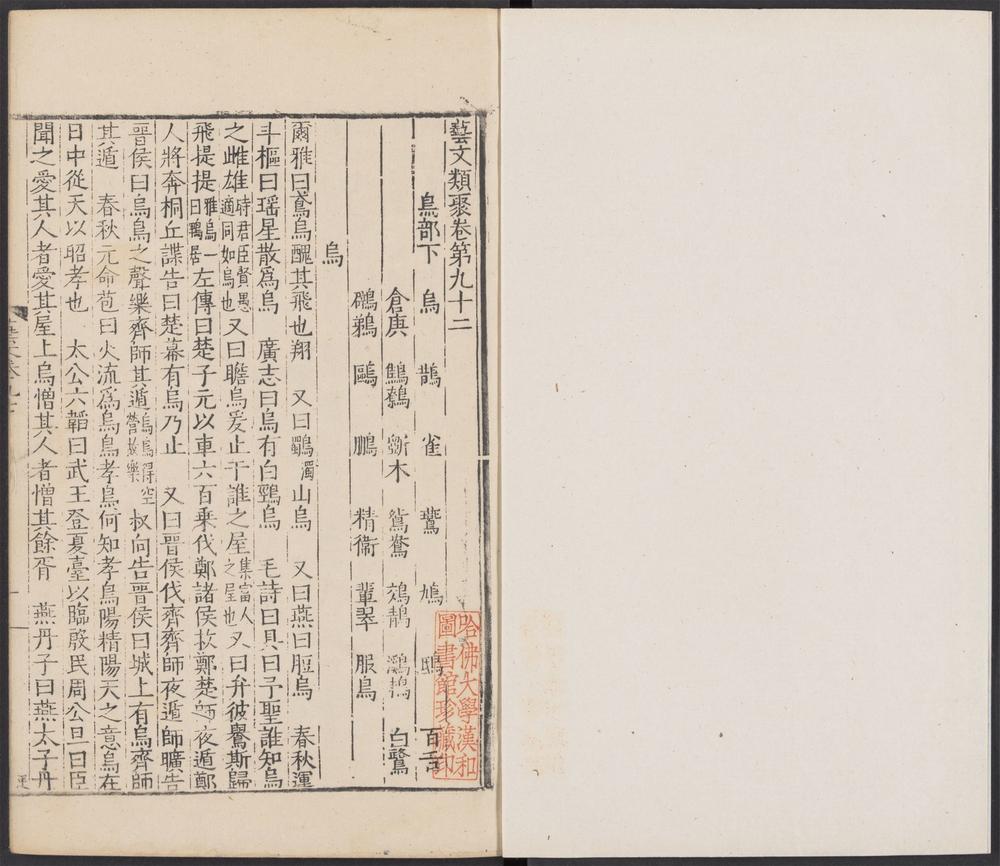 藝文類聚卷第九十二
鳥部下 烏 鵲 雀 鷰 鳩 鴟 百舌
倉庚 鷦鷯 斲木 鴛鴦 鵁鶄 鸂鶒 白鷺
鸊鵜 鷗 鵬 精衞 翡翠 服鳥
烏
爾雅曰鳶烏醜其飛也翔 又曰鸀濁山烏 又曰燕曰脰烏 春秋運
斗樞曰瑶星散爲烏 廣志曰烏有白頸烏 毛詩曰具曰予聖誰知烏
之雌雄時君臣賢愚適同如烏也 又曰瞻烏爰止于誰之屋集富人之屋也 又曰弁彼鸒斯歸
飛提提雅烏一曰鵯居 左傳曰楚子元以車六百乗伐鄭諸侯救鄭楚師夜遁鄭
人將奔桐丘諜告曰楚幕有烏乃止 又曰晉侯伐齊齊師夜遁師曠告
晉侯曰烏烏之聲樂齊師其遁烏烏得空營故樂 叔向告晉侯曰城上有烏齊師
其遁 春秋元命苞曰火流爲烏烏孝烏何知孝烏陽精陽天之意烏在
日中從天以昭孝也 太公六韜曰武王登夏臺以臨殷民周公旦曰臣
聞之愛其人者愛其屋上烏憎其人者憎其餘胥 燕丹子曰燕太子丹
哈佛大學漢和
圖書館珍藏印